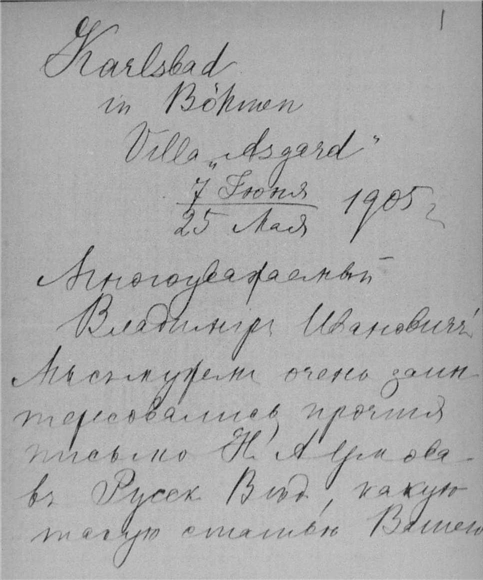 1
Karlsbad
in Böhmen
Villa „Asgard"
7 Іюня
25 Мая 1905 г
Многоуважаемый
Владиміръ Ивановичъ!
Мы съ мужемъ очень заин-
тересовались, прочтя
письмо Н. А. Умова
въ Русск Вѣд, какую
такую статью Вашего